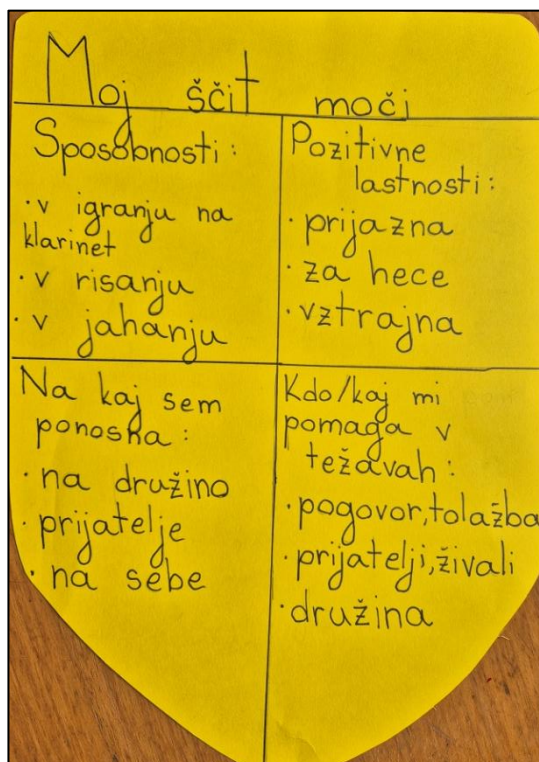 Moj ščit moči
Sposobnosti:
· v igranju na
klarinet
· v risanju
· v jahanju
Pozitivne
lastnosti:
· prijazna
· za hece
· vztrajna
Na kaj sem
ponosna:
· na družino
· prijatelje
· na sebe
Kdo/kaj mi
pomaga v
težavah:
· pogovor, tolažba
· prijatelji, živali
· družina